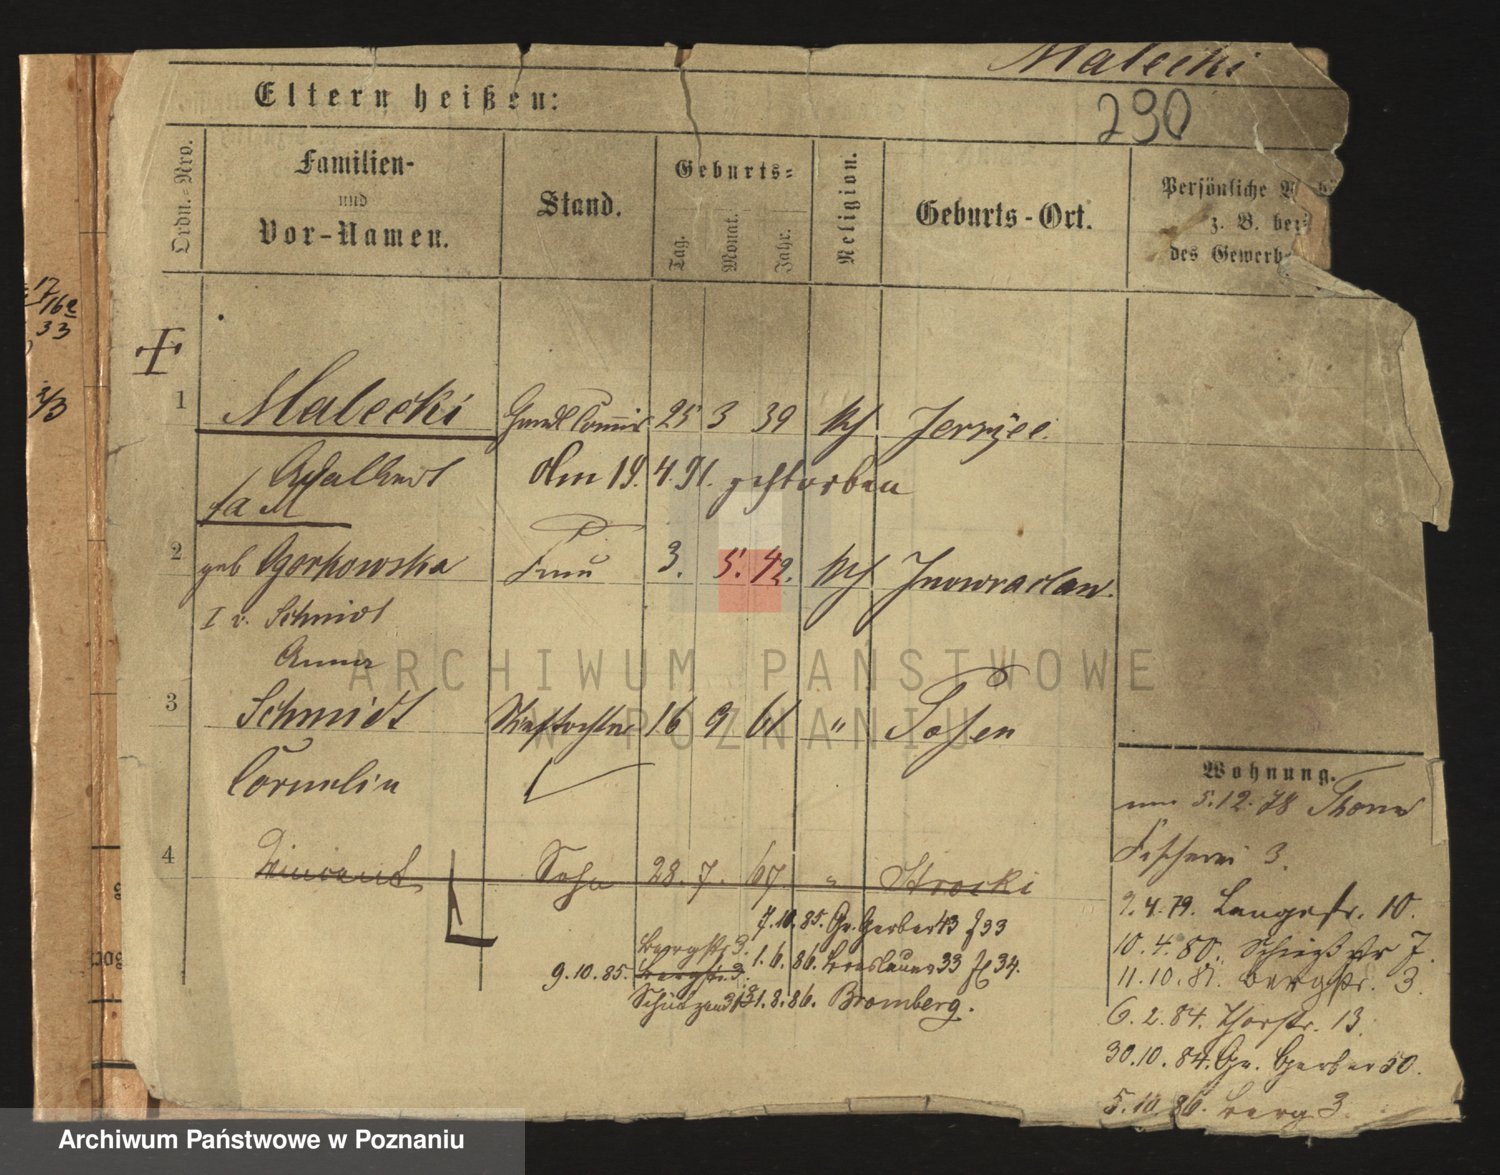 Malecki
Eltern heißen:
290
Ordn.-Nro.
Familien-
und
Vor-Namen.
Stand.
Geburts-
Tag.
Monat.
Jahr.
Religion.
Geburts-Ort.
Persönliche
z. B. bez
des Gewerb
17
16
33
1 Malecki 25 3 39 kth Jerzyce.
Adalbert Am 19. 4. 91. gestorben
fa M
2 geb Gorkowska Frau 3. 5. 42. kth Inowraclaw.
I v. Schmidt
Anna
3 Schmidt Stieftochter 16 9 61 " Posen
Cornelia
4 Vincent Sohn 28. 7. 67 " 
Wohnung.
5. 12. 78 Thorn
Fischerei 3.
9. 4. 79. Langestr. 10.
10. 4. 80. Schießstr 7.
11. 10. 81. Bergstr. 3.
6. 2. 84. Thorstr. 13.
30. 10. 84. Gr. Gerber 50.
5. 10. 86. Berg 3.
7. 10. 85. Gr. Gerber 43 33
Bergstr 3. 1. 6. 86. Breslauer 33 34.
9. 10. 85. Bergstr. 3.
Schützenstr 1. 8. 86. Bromberg.
ARCHIWUM PAŃSTWOWE
W POZNANIU
Archiwum Państwowe w Poznaniu